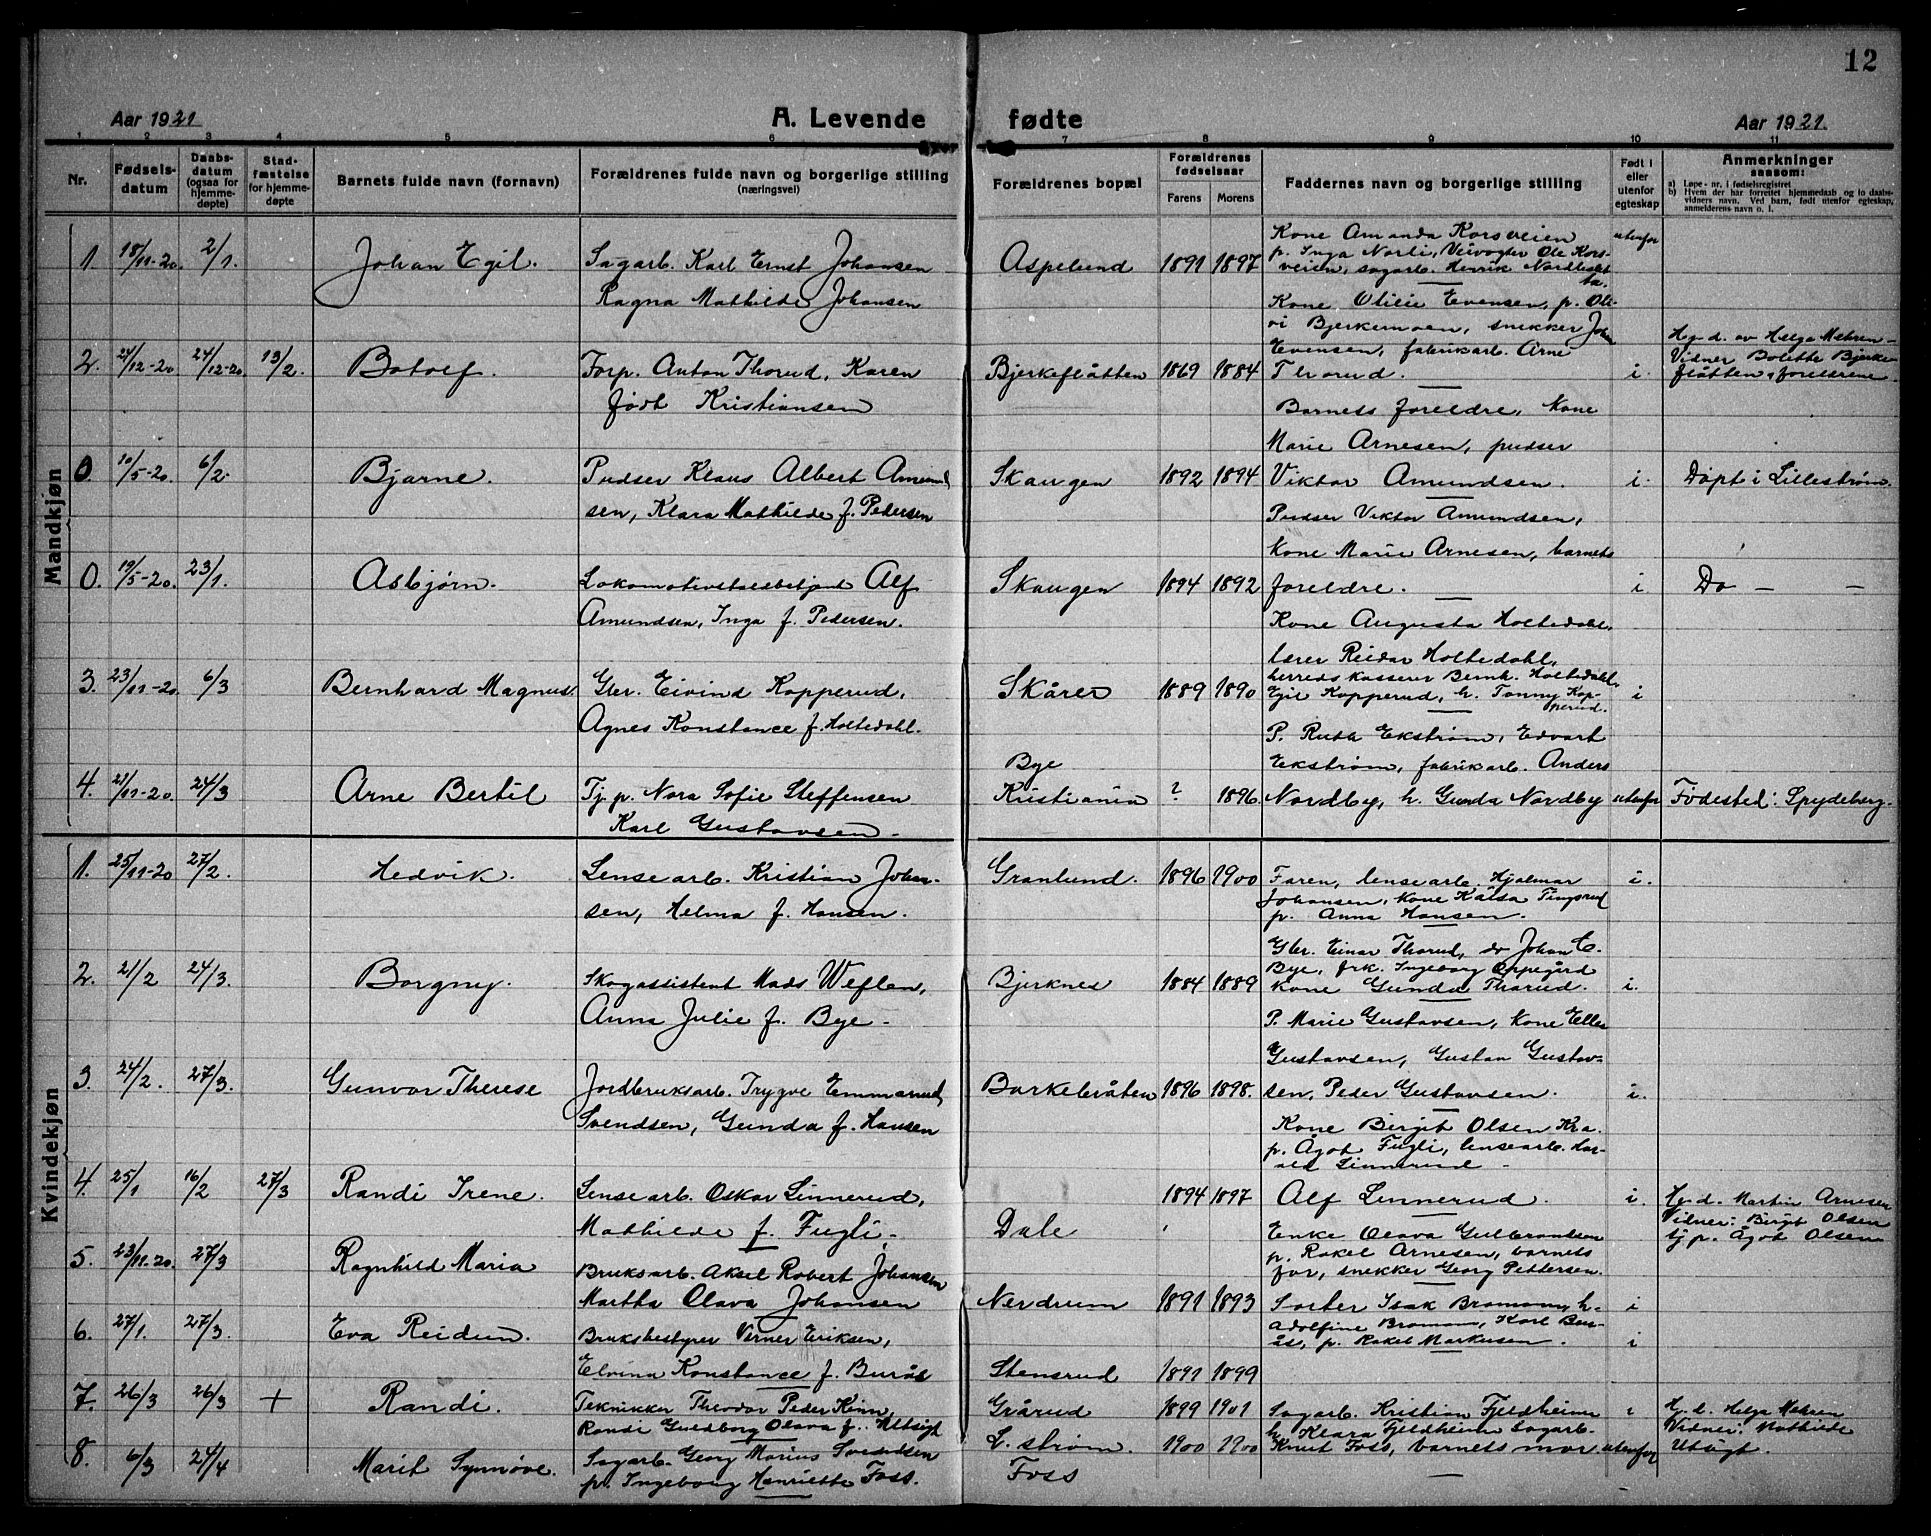 12
Aar 1921
A. Levende fødte
Aar 1921.
1 2 3 4 5 6 7 8 9 10 11
Nr.
Fødsels-
datum
Daabs-
datum
(ogsaa for
hjemme-
døpte)
Stad-
fæstelse
for hjemme-
døpte
Barnets fulde navn (fornavn)
Forældrenes fulde navn og borgerlige stilling
(næringsvei)
Forældrenes bopæl
Forældrenes
fødselsaar
Farens Morens
Faddernes navn og borgerlige stilling
Født i
eller
utenfor
egteskap
Anmerkninger
saasom:
a) Løpe-nr. i fødselsregistret
b) Hvem der har forrettet hjemmedaab og to daabs-
vidners navn. Ved barn, født utenfor egteskap,
anmelderens navn o. l.
Mandkjøn
1. 18/11-20. 2/1. Johan Egil. Sagarb. Karl Ernst Johansen
Ragna Mathilde Johansen
Aspelund 1891 1897
Kone Amanda Korsveien
p. Inga Norli, Veivogter Ole Kors-
veien, sagarb. Henrik
utenfor
2. 24/12-20 24/12-20. 13/2. Botolf. Forp. Anton Thorud, Karen
født Kristiansen
Bjerkeflåtten 1869 1884
Kone Olilie Evensen, p. Oli-
vi Bjerkemoen, snekker Joh
Evensen, fabrikarb. Arne
Thorud.
i.
Hj. d. av Helga Mehren –
Vidner Bolette Bjerke-
flåtten, foreldrene.
0. 10/5-20. 6/2. Bjarne. Pudser Klaus Albert Amund
sen, Klara Mathilde f. Pedersen
Skaugen 1892 1894
Barnets foreldre, Kone
Marie Arnesen, pudser
Viktor Amundsen.
i. Døpt i Lillestrøm.
0. 19/5-20. 23/1. Asbjørn. Alf
Amundsen, Inga f. Pedersen.
Skaugen 1894 1892
Pudser Viktor Amundsen,
Kone Marie Arnesen, barnets
foreldre.
i. Do – –
3. 23/11-20. 6/3 Bernhard Magnus. Gbr. Eivind Kopperud,
Agnes Konstance f. Holtedahl.
Skårer 1889 1890
Kone Augusta Holtedahl,
lærer Reidar Holtedahl,
herredskasserer Bernh. Holtedahl,
Egil Kopperud, h. Tonny Kop-
perud.
i
4. 21/11-20. 24/3 Arne Bertil Tj. p. Nora Sofie Steffensen
Karl Gustavsen –
Bye
Kristiania ? 1896.
P. Ruth Ekstrøm, Edvart
Ekstrøm, fabrikarb. Anders
Nordby, h. Gunda Nordby
utenfor Fødested: Spydeberg.
Kvindekjøn
1. 25/11-20 27/2. Hedvik. Lensearb. Kristian Johan-
sen, Helma f. Hansen.
Granlund. 1896 1900
Faren, lensearb. Hjalmar
Johansen, Kone Kaisa Tingsrud
p. Anna Hansen.
i.
2. 21/2 24/3. Borgny. Skogassistent Mads Weflen,
Anna Julie f. Bye –
Bjerknes 1884 1889
Gbr. Einar Thorud, do Johan C.
Bye, frk. Ingeborg Oppegård
Kone Gunda Thorud.
i.
3. 24/2. 27/3. Gunvor Therese Jordbruksarb. Trygve Emmanuel
Svendsen, Gunda f. Hansen
Borkebråten 1896 1898.
P. Marie Gustavsen, Kone Ellen
Gustavsen, Gustav Gustav-
sen, Peder Gustavsen.
i.
4. 25/1 16/2 27/3 Randi Irene. Lensearb. Oskar Linnerud,
Mathilde f. Fugli.
Dale 1894 1897
Kone Birgit Olsen Kra.
p. Ågot Fugli, lensearb. Har-
ald Linnerud –
Alf Linnerud.
i. Hj. d. Martin Arnesen
Vidner: Birgit Olsen
tj. p. Ågot Olsen
5. 23/11-20. 27/3 Ragnhild Maria Bruksarb. Aksel Robert Johansen
Martha Olava Johansen
Nerdrum 1891 1893
Enke Olava Gulbrandsen
p. Rakel Arnesen, barnets
far, snekker Georg Pettersen.
i
6. 27/1. 27/3. Eva Reidun. Bruksbestyrer Verner Eriksen,
Elvina Konstance f. Burås
Stensrud 1891 1899
Sorter Isak Bromann, h.
Adolfine Broman, Karl Bur-
ås, p. Rakel Markusen.
i
7. 26/3 26/3 + Randi. Teknikker Theodor Peder Kinn,
Randi Guldborg Olava f. Utsigt
Grårud 1899 1901
Sagarb. Kristian Fjeldheim
h. Klara Fjeldheim Sagarb.
i Hj. d. Helga Mehren
Vidner: Mathilde
Utsigt.
8. 6/3 24/4 Marit Synnøve. Sagarb. Georg Marius Svendsen
p. Ingeborg Henriette Foss.
L. strøm. 1900 1900
Foss
Knut Foss, barnets mor
utenfor